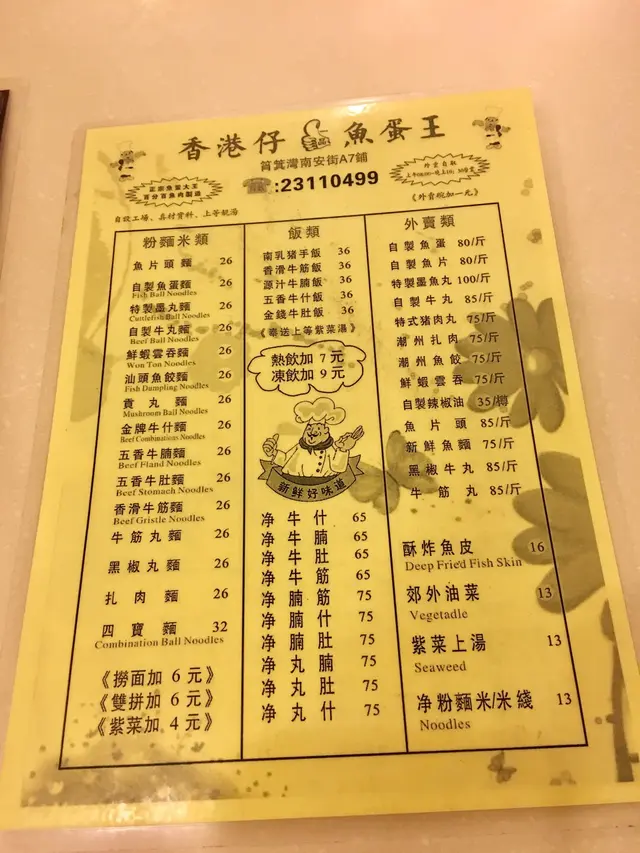 香港仔 魚蛋王
筲箕灣南安街A7鋪
☎:23110499
正宗魚蛋大王
百分百魚肉製造
外賣自取
《外賣税加一元》
自設工場、真材實料、上等靚湯
粉麵米類
魚片頭麵 26
自製魚蛋麵 26
Fish Ball Noodles
特製墨丸麵 26
Cuttlefish Ball Noodles
自製牛丸麵 26
Beef Ball Noodles
鮮蝦雲吞麵 26
Won Ton Noodles
汕頭魚餃麵 26
Fish Dumpling Noodles
貢丸麵 26
Mushroom Ball Noodles
金牌牛什麵 26
Beef Combinations Noodles
五香牛腩麵 26
Beef Fland Noodles
五香牛肚麵 26
Beef Stomach Noodles
香滑牛筋麵 26
Beef Gristle Noodles
牛筋丸麵 26
黑椒丸麵 26
扎肉麵 26
四寶麵 32
Combination Ball Noodles
《撈面加 6 元》
《雙拼加 6 元》
《紫菜加 4 元》
飯類
南乳猪手飯 36
香滑牛筋飯 36
源汁牛腩飯 36
五香牛什飯 36
金錢牛肚飯 36
《奉送上等紫菜湯》
熱飲加 7 元
凍飲加 9 元
新鮮好味道
净牛什 65
净牛腩 65
净牛肚 65
净牛筋 65
净腩筋 75
净腩什 75
净腩肚 75
净丸腩 75
净丸肚 75
净丸什 75
外賣類
自製魚蛋 80/斤
自製魚片 80/斤
特製墨魚丸 100/斤
自製牛丸 85/斤
特式豬肉丸 75/斤
潮州扎肉 75/斤
潮州魚餃 75/斤
鮮蝦雲吞 75/斤
自製辣椒油 35/樽
魚片頭 85/斤
新鮮魚麵 75/斤
黑椒牛丸 85/斤
牛筋丸 85/斤
酥炸魚皮 16
Deep Frie'd Fish Skin
郊外油菜 13
Vegetadle
紫菜上湯 13
Seaweed
净粉麵米/米綫 13
Noodles